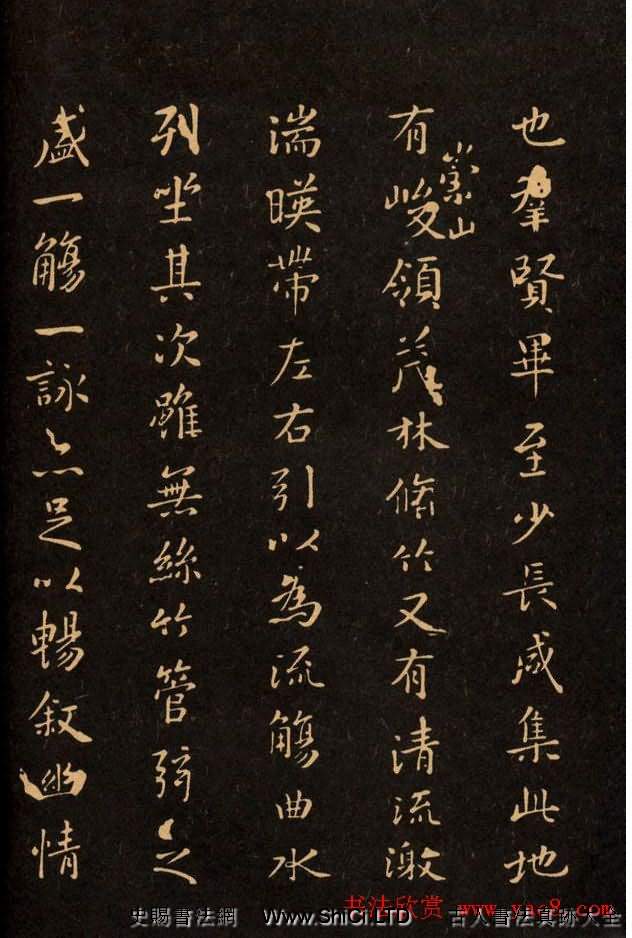 也羣賢畢至少長咸集此地
有崇山峻領茂林脩竹又有清流激
湍暎帶左右引以為流觴曲水
列坐其次雖無絲竹管弦之
盛一觴一詠亦足以暢叙幽情
书法欣赏 www.yac8.com
史賜書法網 WwW.ShiCi.LTD 古人書法真跡大全